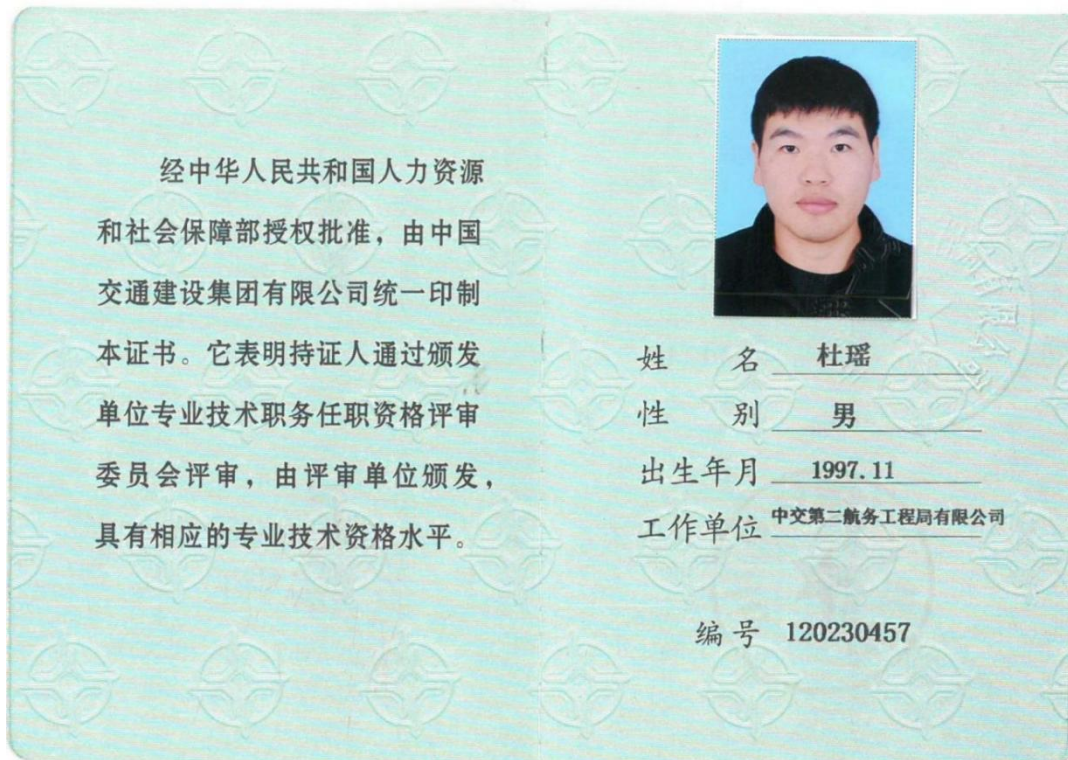 经中华人民共和国人力资源
和社会保障部授权批准，由中国
交通建设集团有限公司统一印制
本证书。它表明持证人通过颁发
单位专业技术职务任职资格评审
委员会评审，由评审单位颁发，
具有相应的专业技术资格水平。
姓 名 杜瑶
性 别 男
出生年月 1997.11
工作单位 中交第二航务工程局有限公司
编号 120230457